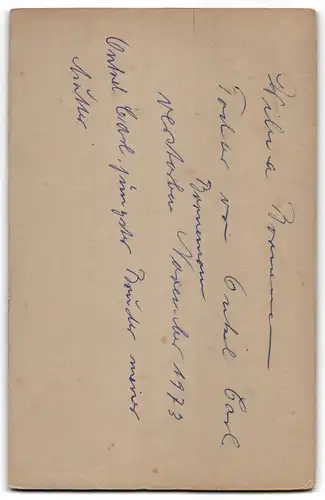 Wilma Bornemann
Tochter von Onkel Carl
Bornemann
verstorben November 1973
Onkel Carl, jüngster Bruder meiner
Mutter.